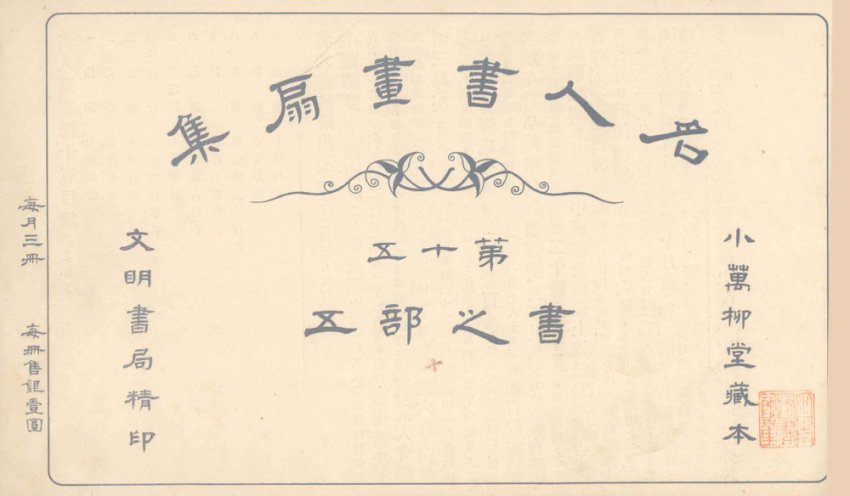 名人書畫扇集
第十五
書之部五
小萬柳堂藏本
文明書局精印
每月三冊 每冊售銀壹圓
十